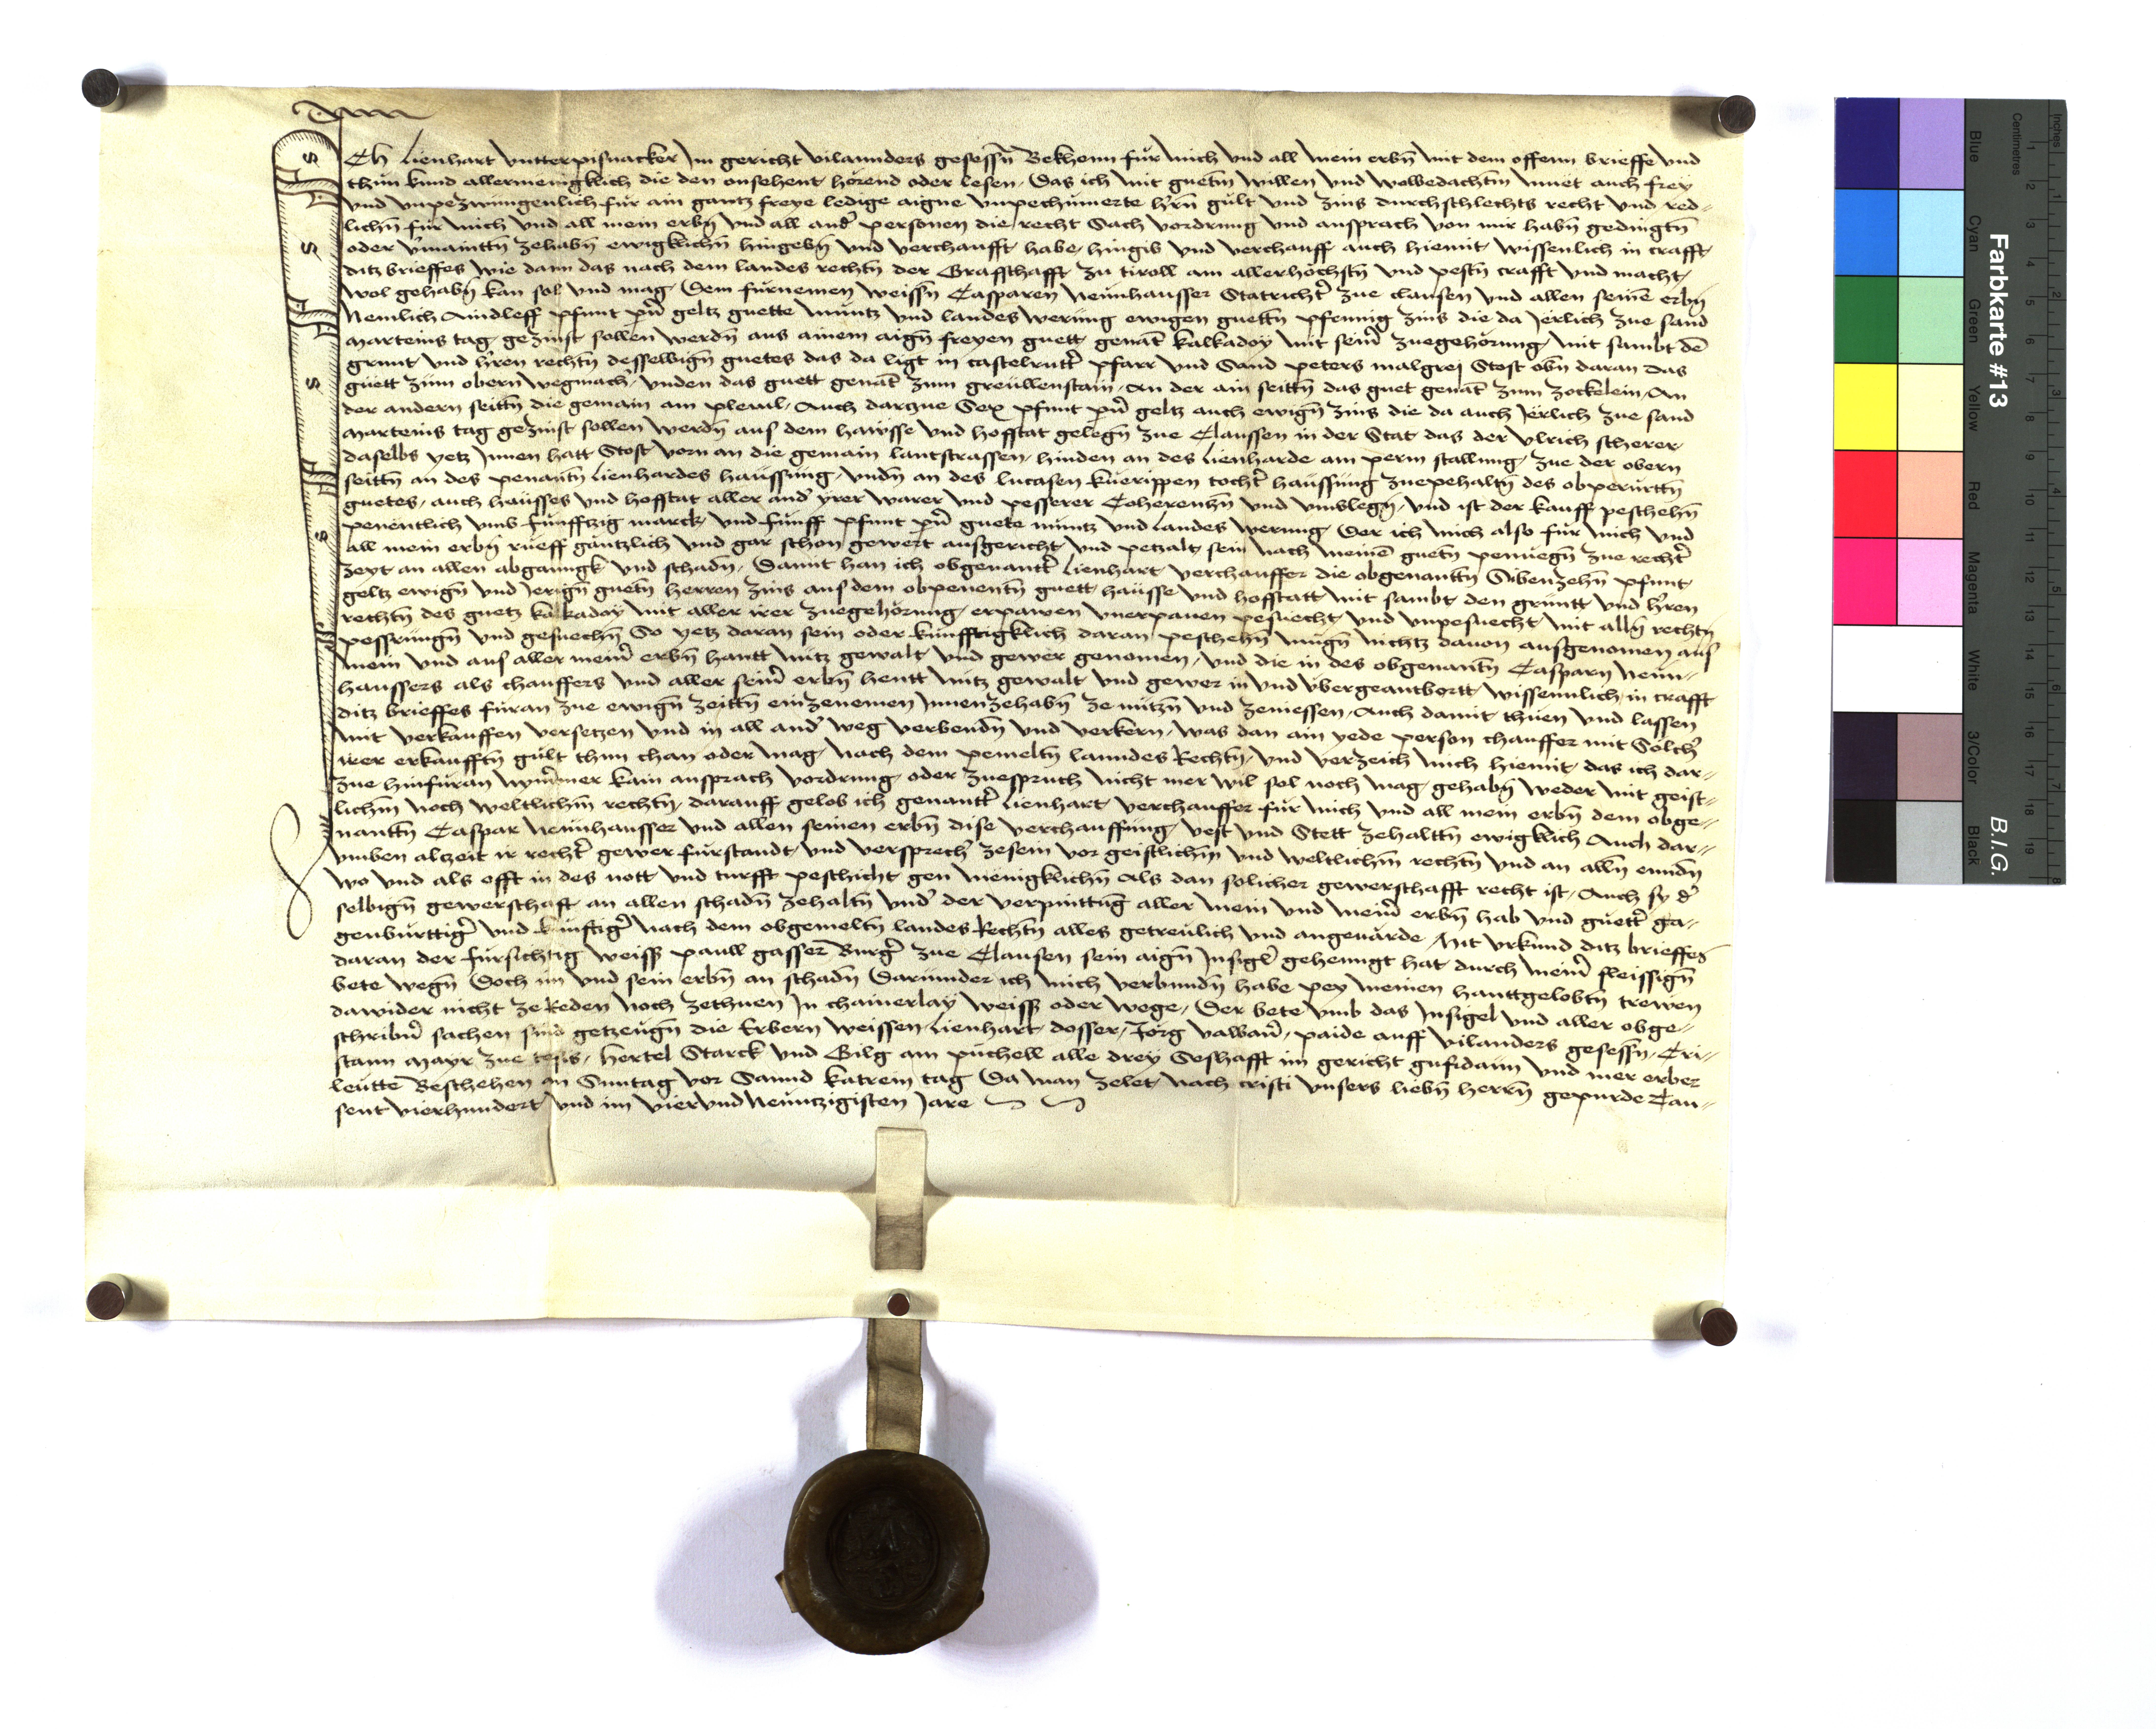 Ich Lienhart vntterpisnacker Jm gericht vilannders gesessñ Bekhenn für mich vnd all mein erbñ mit dem offenn brieffe vnd
thün kund allermenigklich die den onsehent hörend oder lesen. Das ich mit guetm̄ willen vnd wolbedachtm̄ muet auch frey
vnd vnpezwungenlich für ain gantz freye ledige aigne vnpechümerte hr̄n gült vnd zins durchschlechts recht vnd red-
lichñ für mich vnd all mein erbñ vnd all and̾ personen die recht Sach vordrung vnd ansprach von mir habñ gedingtñ
oder v̾maintñ zehabñ ewigklichñ hingebñ vnd verchaufft habe, hingib vnd verchauff auch hiemit wissenlich in crafft
ditz brieffes wie dann das nach dem landes rechtñ der Graffschafft zu tiroll am allerhöchstñ vnd pestñ crafft vnd macht
wol gehabñ kan sol vnd mag. Dem fürnemen weissñ Casparen Neünhausser Statricht̾ zue clausen vnd allen seinē erbñ
Nemlich Aindleff pfunt pn̄ geltz guette müntz vnd landes werüng ewigen guettñ pfennig zins die da Jerlich zue sand
marteins tag gezinst sollen werdñ aus ainem aigñ freyen guett genāt kalkadoy mit seim̄ zuegehörung, mit sambt dē
grunt vnd hr̄en rechtñ desselbigñ guetes das da ligt in castelrutt̾ pfarr vnd Sand peters malgrei Stost obñ daran das
güett zum obern wegmach̾, vnden das guett genāt zum greüllenstain, An der ain seittñ das guet genāt zum zockelein, An
der andern seittñ die gemain am plewl. Auch darzue Sex pfunt pn̄ geltz auch ewigñ zins die da auch Jerlich zue sand
marteins tag gezinst sollen werdñ aus dem hawsse vnd hofftat gelegñ zue Claussen in der Stat das der vlrich scherer
daselbs yetz Jnnen hatt Stost vorn an die gemain lantstrassen, hinden an des lienharde am perm stallung, zue der obern
seittñ an des penantñ Lienhardes haüssüng, vndñ an des lucasen küerippen tocht̾ haüssüng zuepehaltñ des obperürttñ
guetes, auch haüsses vnd hofftat aller and̾ yrer warer vnd pesserer Coherentzñ vnd vmblegñ, vnd ist der kauff peschehñ
penentlich vmb fünfftzig marck vnd fünff pfunt pn̄ guete müntz vnd landes werung, Der ich mich also für mich vnd
all mein erbñ rueff gantzlich vnd gar schon gewert ausgericht vnd petzalt sein nach meinē guetñ penuegñ zue recht̾
zeyt an allen abganngk vnd schadñ, Damit han ich obgenantt̾ Lienhart verchauffer die obgenanttñ Sibenzehñ pfunt
geltz ewigñ vnd Jerigñ guetñ herren zins aus dem obpenentñ guett haüsse vnd hofstatt mit sambt den grüntt vnd hr̄en
rechtñ des guetz kalkadoy mit aller irer zuegehörung, erpawen vnerpauen pesuecht vnd vnpesuecht mit allñ rechtñ
pessrüngñ vnd gesuechñ So yetz daran sein oder künfftigklich daran peschehñ mügñ nichtz dauon ausgenomen aus
mein vnd aus aller meim̄ erbñ hantt nütz gewalt vnd gewer genomen, vnd die in des obgenantñ Casparn Neün-
haussers als chauffers vnd aller seim̄ erbñ hentt nütz gewalt vnd gewer in vnd vbergeantbortt wissennlich in crafft
ditz brieffes füran zue ewigñ zeittñ einzenemen Jnnenzehabñ ze nützñ vnd zeniessen, Auch damit thüen vnd lassen
mit verkauffen versetzen vnd in all and̾ weg verbendñ vnd verkern, was dan ain yede person chauffer mit Sölch̾
irer erkaufftñ gült thun chan oder mag, nach dem pemeltñ lanndes Rechtñ, vnd verzeich mich hiemit das ich dar-
zue hinfüran nym̄mer kain ansprach vordrung oder zuespruch nicht mer wil sol noch mag gehabñ weder mit geist-
lichm̄ noch weltlichm̄ rechtñ, darauff gelob ich genantt̾ Lienhart verchauffer für mich vnd all mein erbñ dem obge-
nanttñ Caspar Neünhausser vnd allen seinen erbñ dise verchauffung vest vnd Stett zehalttñ ewigklich Auch dar-
vmben altzeit ir recht̾ gewer fürstandt vnd versprech̾ zesein vor geistlichm̄ vnd weltlichm̄ rechtñ vnd an allñ enndñ
wo vnd als offt in des nott vnd turfft peschicht gen menigklichñ Als dan solicher gewerschafft recht ist, Auch sy d̾
selbigñ gewerschaft an allen schadñ zehaltñ vnd̾ der verpinttūg aller mein vnd meim̄ erbñ hab vnd güett̾ ga-
genbürttig̾ vnd künftig̾ nach dem obgemeltñ landes Rechtñ alles getreülich vnd angeuärde, Mit vrkund ditz brieffes
daran der fürsichtig weiss paull gasser Burg̾ zue Clausen sein aigñ Jnsigl̾ gehenngt hat durch meim̄ fleissigñ
bete wegñ Doch im vnd sein erbñ an schadñ Daründer ich mich verbundñ habe pey meinen hanttgelobtñ trewen
dawider nicht ze Reden noch zethuen Jn chainerlay weiss oder wege, Der bete vmb das Jnsigel vnd aller obge-
schribn̄ sachen sind getzeugñ die Erbern weissen, Lienhart dosser, Jorg valbaur̄, paide auff vilanders gesessñ, Cri-
stann mayr zue tesis, hertel Starck vnd Gilg am püchell alle drey Seshafft im gericht gufidaün vnd mer erber
leütte Beschehen an Suntag vor Sannd katrein tag Da man zelet nach cristi vnsers liebñ herrñ gepurde Tau-
sent vierhundert vnd im viervndNeüntzigisten Jare
Farbkarte #13
B.I.G.
Inches
Centimetres
Blue
Cyan
Green
Yellow
Red
Magenta
White
3/Color
Black
1 2 3 4 5 6 7 8 9 10 11 12 13 14 15 16 17 18 19
1 2 3 4 5 6 7 8